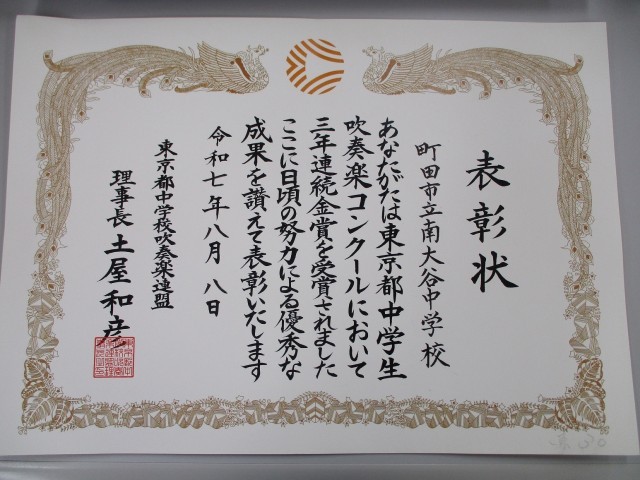 表彰状
町田市立南大谷中学校
あなたがたは東京都中学生
吹奏楽コンクールにおいて
三年連続金賞を受賞されました
ここに日頃の努力による優秀な
成果を讃えて表彰いたします
令和七年八月八日
東京都中学校吹奏楽連盟
理事長 土屋和彦